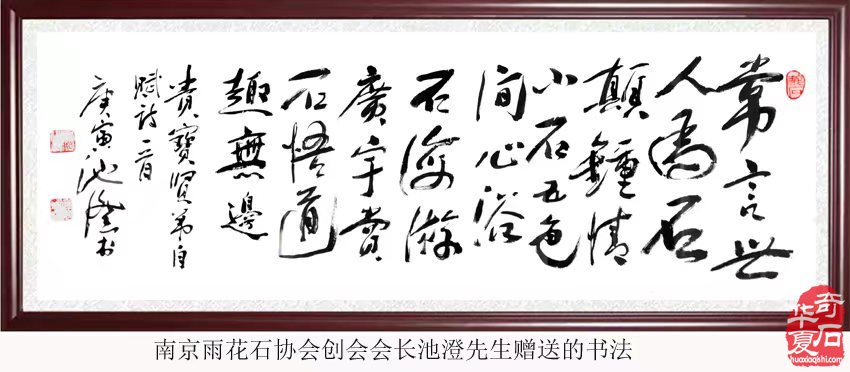 常言世
人為石
顛鍾情
小石五色
間心浴
石海游
廣宇賞
石悟道
趣無邊
貴寶賢弟自
賦詩一首
庚寅池澄书
南京雨花石协会创会会长池澄先生赠送的书法
华夏奇石
huaxiaqishi.com